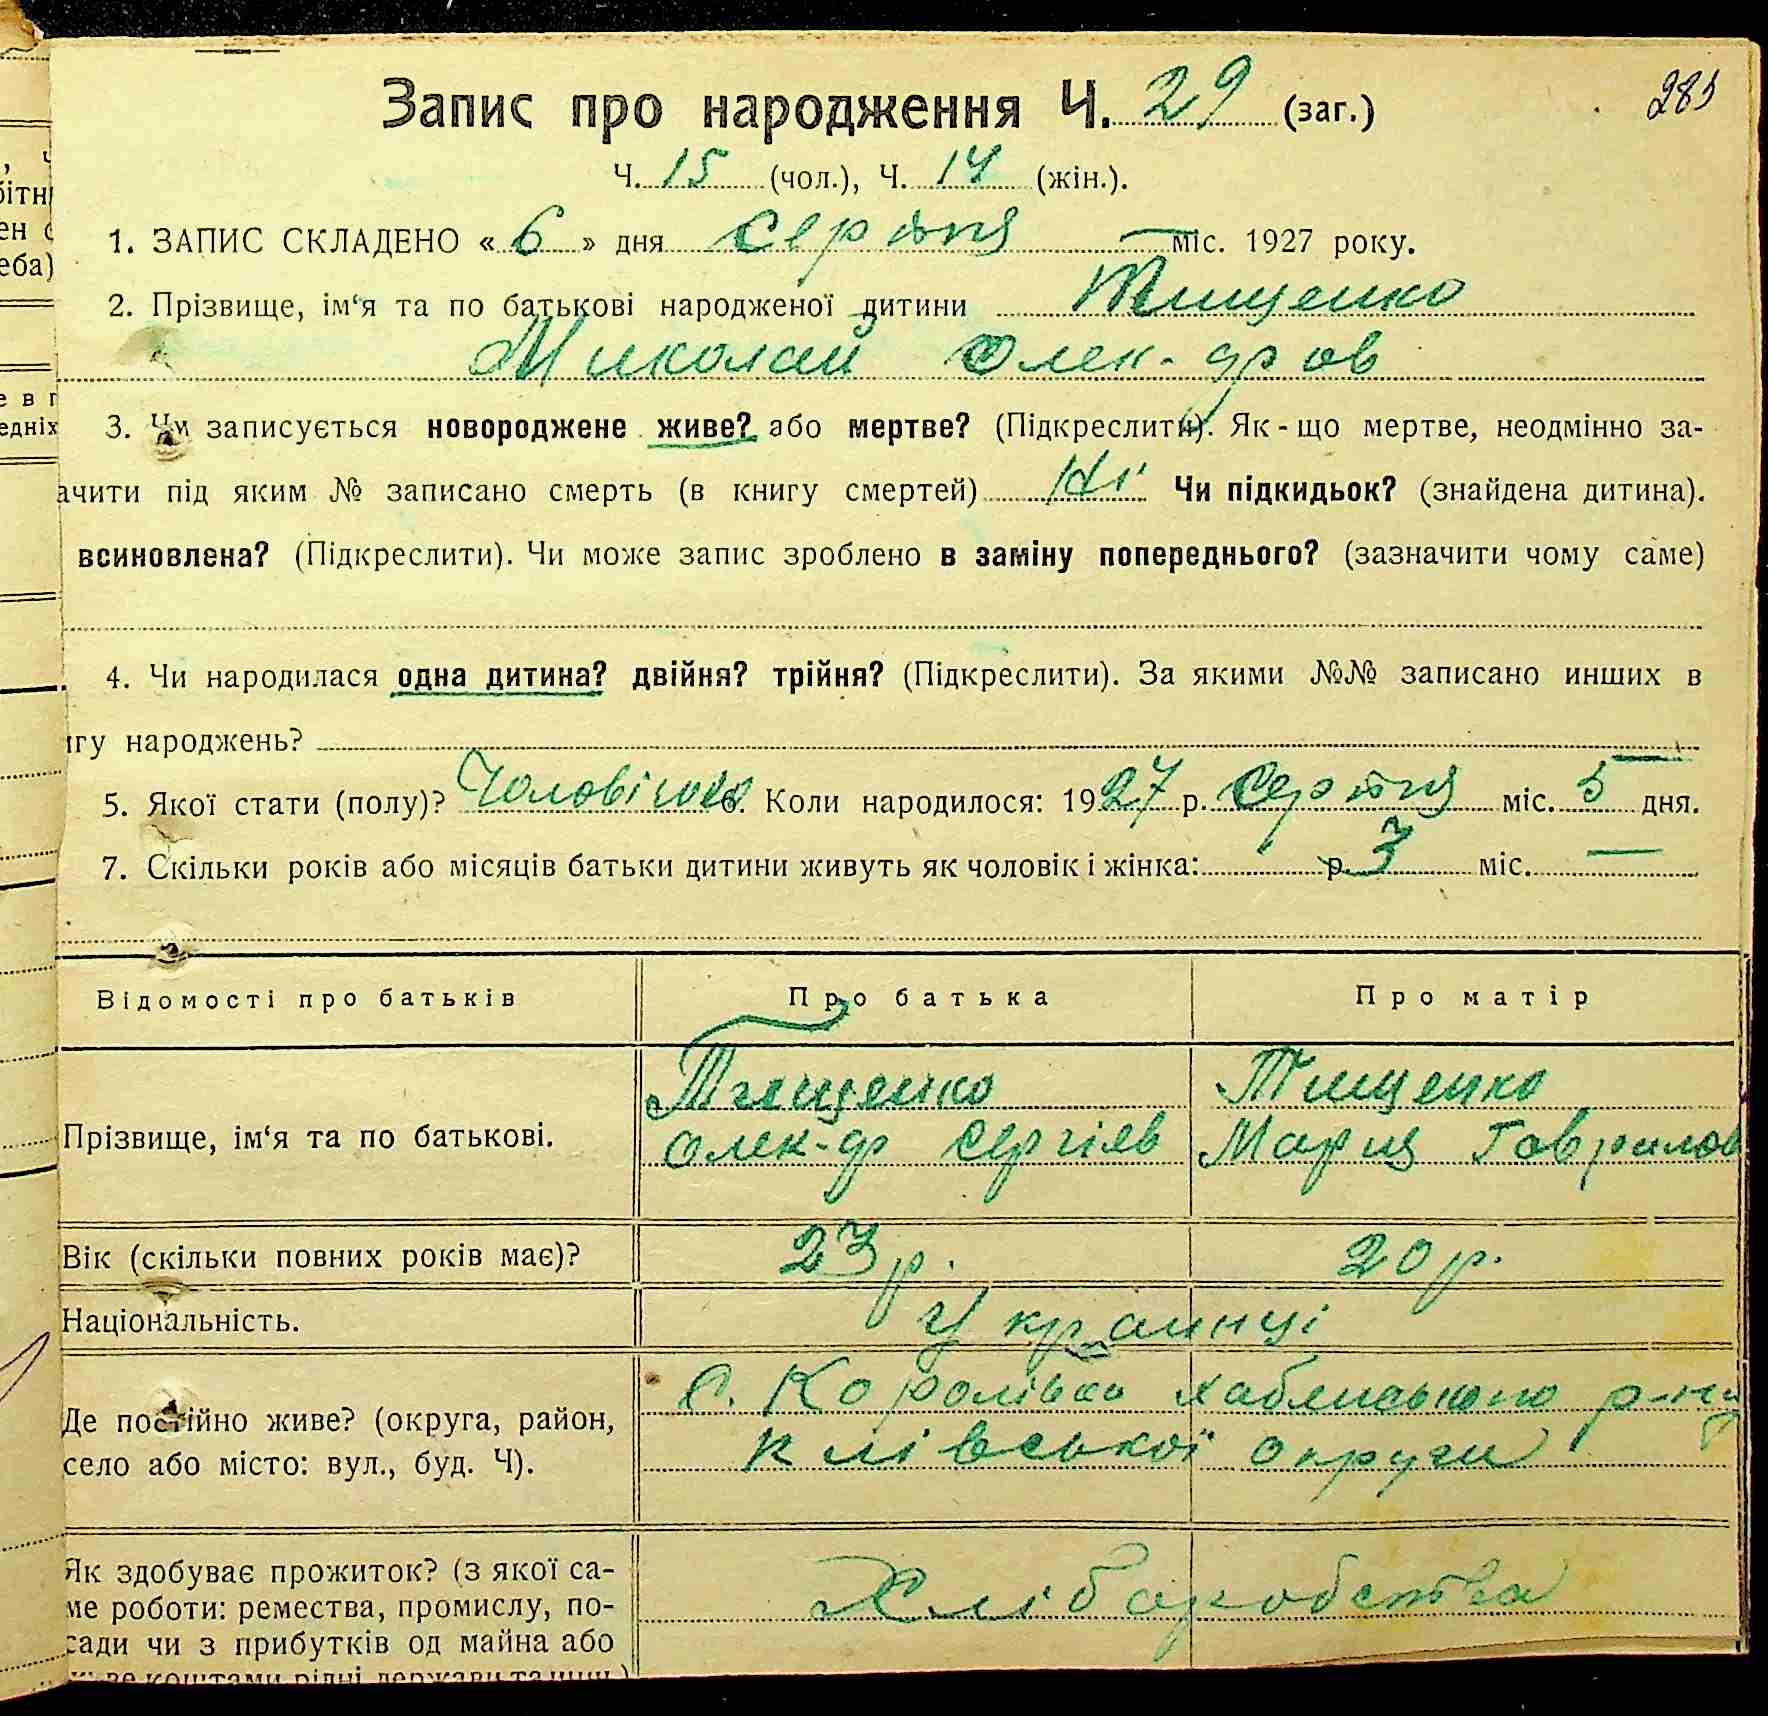 285
Запис про народження Ч. 29 (заг.)
Ч. 15 (чол.), Ч. 14 (жін.).
1. ЗАПИС СКЛАДЕНО « 6 » дня Серпня міс. 1927 року.
2. Прізвище, ім‘я та по батькові народженої дитини Тищенко
Миколай Олек-дров
3. Чи записується новороджене живе? або мертве? (Підкреслити). Як-що мертве, неодмінно за-
ачити під яким № записано смерть (в книгу смертей) Ні Чи підкидьок? (знайдена дитина).
всиновлена? (Підкреслити). Чи може запис зроблено в заміну попереднього? (зазначити чому саме)
4. Чи народилася одна дитина? двійня? трійня? (Підкреслити). За якими №№ записано инших в
игу народжень?
5. Якої стати (полу)? Чоловічої 6. Коли народилося: 1927 р. Серпня міс. 5 дня.
7. Скільки років або місяців батьки дитини живуть як чоловік і жінка: р. 3 міс. —
Відомості про батьків Про батька Про матір
Тищенко Тищенко
Прізвище, ім‘я та по батькові. Олек-др Сергіев Мария Гаврилов
Вік (скільки повних років має)? 23 р. 20 р.
Національність. Украинці
С. Королівка Хабенського р-ну
Де постійно живе? (округа, район,
київської округи
село або місто: вул., буд. Ч).
Як здобуває прожиток? (з якої са-
ме роботи: ремества, промислу, по- Хліборобства
сади чи з прибутків од майна або